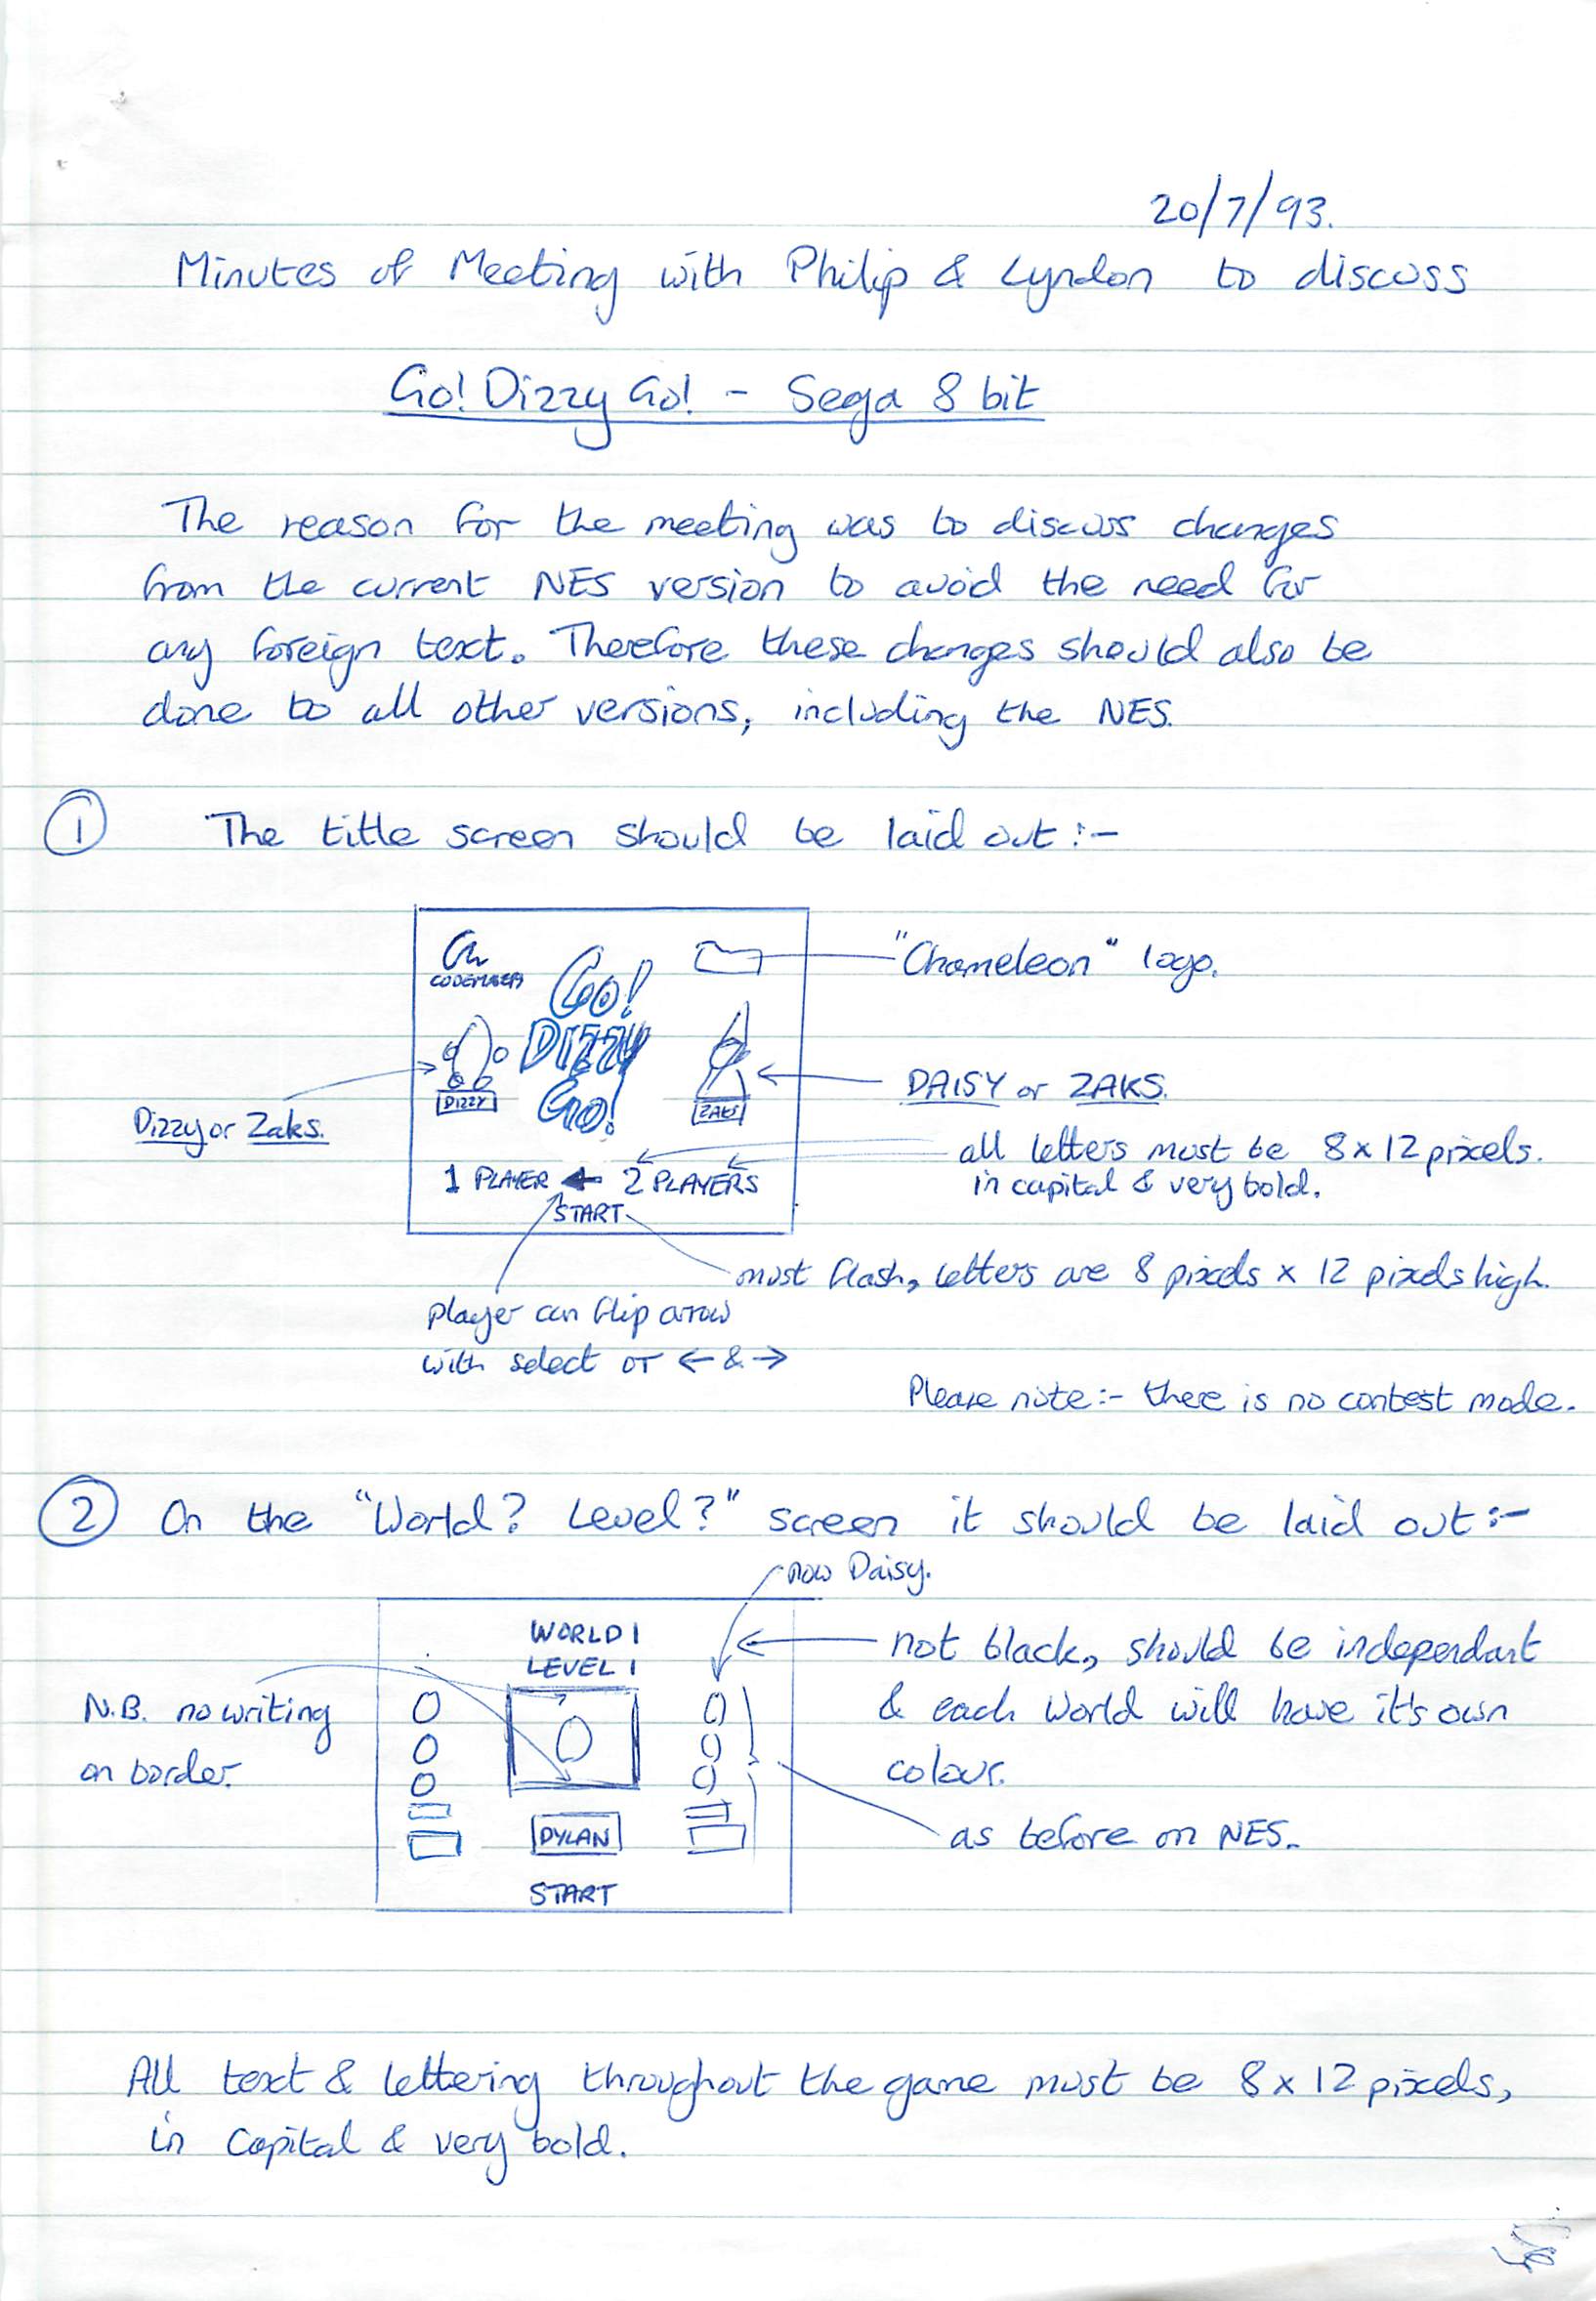 20/7/93.
Minutes of Meeting with Philip & Lyndon to discuss
Go! Dizzy Go! - Sega 8 bit
The reason for the meeting was to discuss changes
from the current NES version to avoid the need for
any foreign text. Therefore these changes should also be
done to all other versions, including the NES.
① The title screen should be laid out :-
CODEMASTERS
GO!
DIZZY
GO!
"Chameleon" logo.
DIZZY
ZAKS
DAISY or ZAKS.
Dizzy or Zaks.
all letters must be 8 x 12 pixels.
in capital & very bold.
1 PLAYER ← 2 PLAYERS
START
must flash, letters are 8 pixels x 12 pixels high.
player can flip arrow
with select or ← & →
Please note:- there is no contest mode.
② On the "World? Level?" screen it should be laid out :-
now Daisy.
WORLD 1
LEVEL 1
not black, should be independant
& each World will have it's own
colour.
N.B. no writing
on border.
as before on NES.
DYLAN
START
All text & lettering throughout the game must be 8 x 12 pixels,
in capital & very bold.